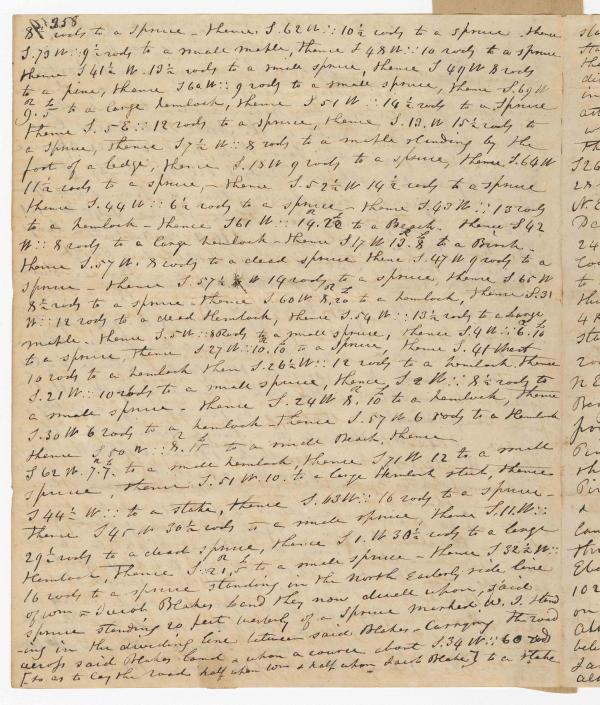 258
8½ rods to a spruce - thence S.62 W∷ 10½ rods to a spruce. thence
S.73 W∷ 9½ rods to a small maple, thence S 48 W∷ 10 rods to a spruce
thence S 41½ W. 13½ rods to a small spruce, thence S 49 W 8 rods
to a pine, thence S 60 W∷ 9 rods to a small spruce, thence S.69 W
9.5 to a large hemlock, thence S 51 W∷ 14½ rods to a Spruce
thence S.5 E∷ 12 rods to a spruce, thence S.13. W 15½ rods to
a Spruce, thence S 7½ W∷ 8 rods to a maple standing by the
foot of a ledge, thence S.15 W 9 rods to a spruce, thence S.64 W
11½ rods to a spruce, - thence S.52½ W 14½ rods to a spruce
thence S.44 W∷ 6½ rods to a spruce - thence S.45 W∷ 13 rods
to a hemlock - thence S 61 W∷ 14.20 to a Beach. thence S 42
W∷ 8 rods to a large hemlock - thence S 17 W 13.8 to a Birch -
thence S.57 W. 8 rods to a dead spruce thence S.47 W 9 rods to a
spruce - thence S.57½ W 14 rods to a spruce, thence S 65 W
8½ rods to a spruce - thence S 60 W 8.20 to a hemlock, thence S.31
W∷ 12 rods to a dead Hemlock, thence S.54 W∷ 13½ rods to a large
maple - thence S.5 W∷ 8 Rods to a small spruce, thence S.4 W∷ 6.10
to a spruce, thence S 27 W∷ 10.10 to a Spruce, thence S.41 West
10 rods to a hemlock then S.26½ W∷ 12 rods to a hemlock thence
S.21 W∷ 10 rods to a small spruce, thence S. 2 W∷ 8½ rods to
a small spruce - thence S.24 W 8.10 to a hemlock, thence
S.30 W 6 rods to a hemlock - thence S.57 W 6 rods to a Hemlock
thence S 50 W∷ 8. to a small Beach, thence
S 62 W. 7.7. to a small hemlock, thence S 71 W 12 to a small
spruce, thence S.51 W. 10. to a large Hemlock stub, thence
S 44½ W∷ to a stake, thence S.43 W∷ 16 rods to a spruce -
thence S 45 W 30½ rods to a small spruce, thence S.11. W∷
29½ rods to a dead spruce, thence S 1. W 30½ rods to a large
Hemlock, thence S.21.5 to a small spruce - thence S 32½ W∷
16 rods to a spruce standing in the North Easterly side line
of Wm = Jacob Blakes land they now dwell upon, said
spruce standing 20 feet westerly of a Spruce marked W. I. stand
-ing in the dividing line between said Blakes - Carrying the road
across said Blakes land & upon a course about S.34 W∷ 60 rod
[so as to lay the road half upon Wm & half upon Jacob Blake,] to a stake